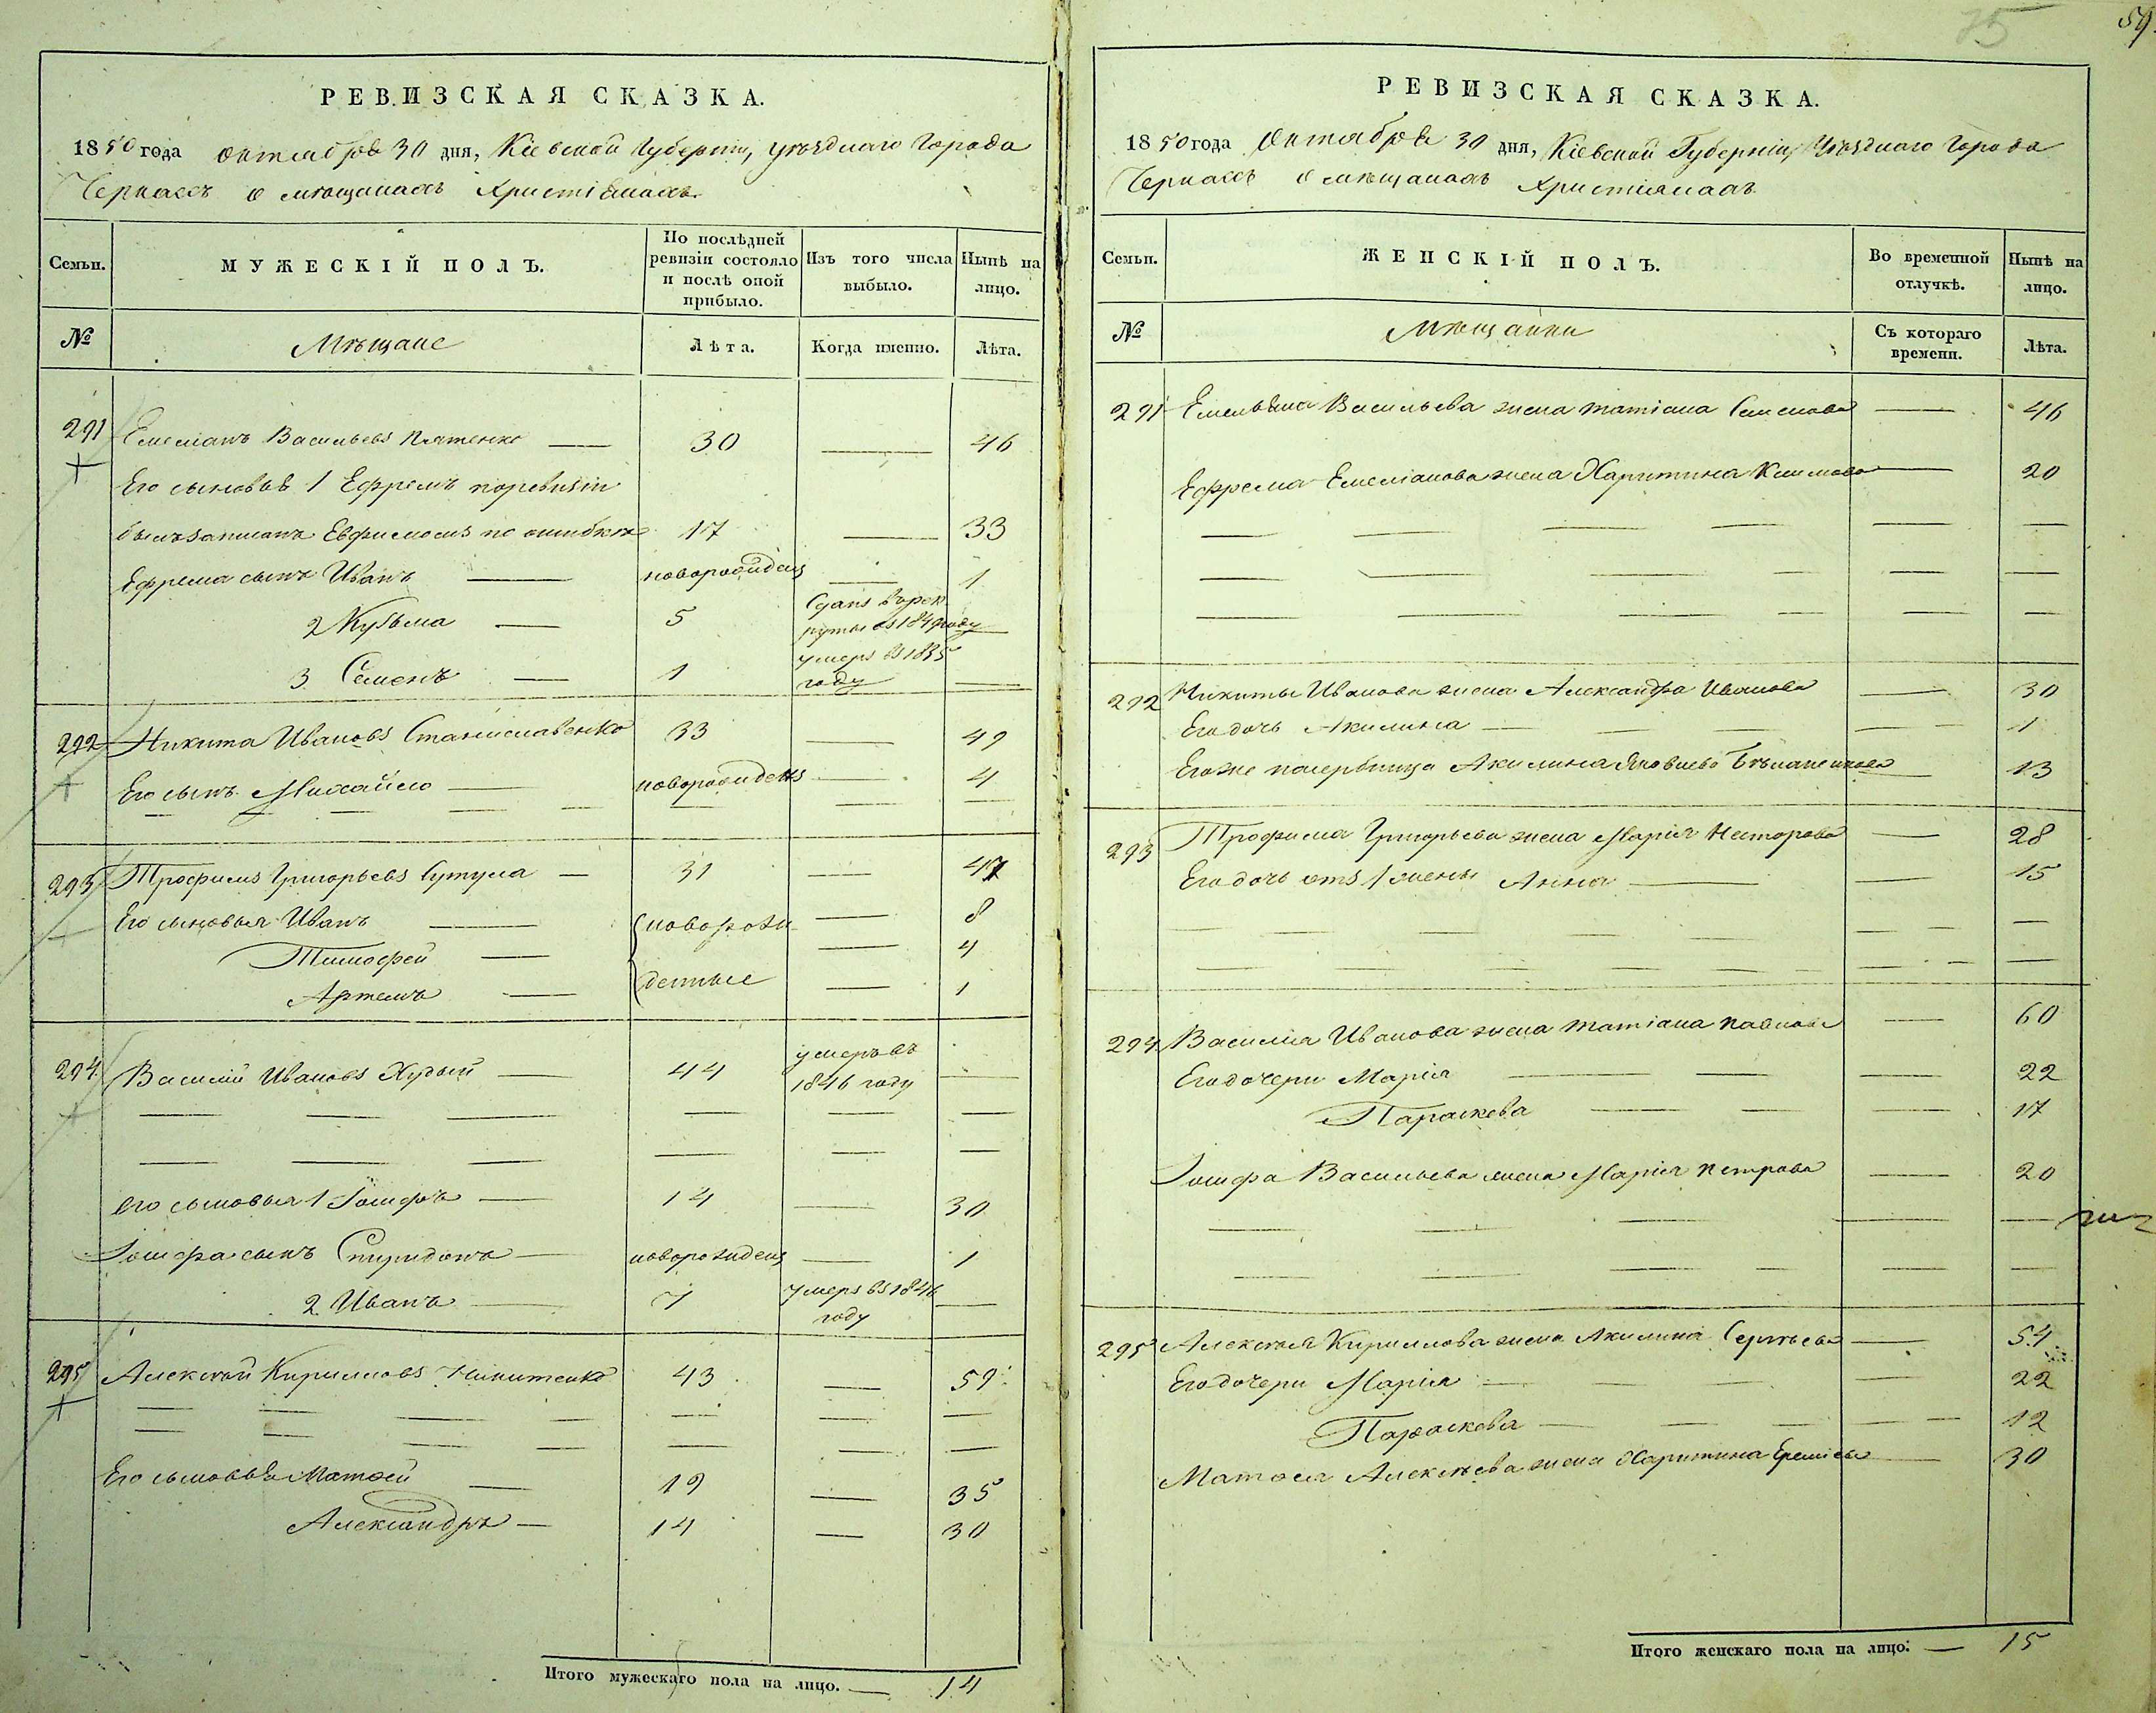 75
54
РЕВИЗСКАЯ СКАЗКА.
1850 года Октября 30 дня, Кіевской Губерніи, уѣзднаго Города
Черкасъ о мѣщанахъ Христіянахъ.
Семьи.
МУЖЕСКІЙ ПОЛЪ.
По послѣдней ревизіи состояло и послѣ оной прибыло.
Изъ того числа выбыло.
Нынѣ на лицо.
№ Мѣщане Лѣта. Когда именно. Лѣта.
291 Емеліанъ Васильевъ Пятенко — 30 — 46
Его сыновья 1 Ефремъ поревизіи
былъ записанъ Евфимомъ по ошибкѣ 17 — 33
Ефрема сынъ Иванъ — новорожденъ — 1
2 Кузьма — 5 Сданъ върек
руты въ 184 году —
3 Семенъ — 1 умеръ въ 1835
году —
292 Никита Ивановъ Станиславенко 33 — 49
Его сынъ Михайло — новорожденъ — 4
293 Трофимъ Григорьевъ Сутула — 31 — 47
Его сыновья Иванъ — новорож — 8
Тимофей — — 4
Артемъ — денные — 1
294 Василій Ивановъ Худый — 44 умеръ въ
1846 году —
Его сыновья 1 Іосифъ — 14 — 30
Іосифа сынъ Спиридонъ — новорожденъ — 1
2 Иванъ — 7 умеръ въ 1846
году —
295 Алексѣй Кирилловъ Никитенко 43 — 59
Его сыновья Матѳей — 19 — 35
Александръ — 14 — 30
Итого мужескаго пола на лицо. — 14
РЕВИЗСКАЯ СКАЗКА.
1850 года Октября 30 дня, Кіевской Губерніи, Уѣзднаго Города
Черкасъ о мѣщанахъ Христіянахъ
Семьи.
ЖЕНСКІЙ ПОЛЪ.
Во временной отлучкѣ.
Нынѣ на лицо.
№ Мѣщанки Съ котораго времени. Лѣта.
291 Емельяна Васильева жена Татіана Семенова — 46
Ефрема Емеліанова жена Харитина Климова — 20
292 Никиты Иванова жена Александра Иванова — 30
Его дочь Акилина — 1
Егоже падчерица Акилина Яковлева — 13
293 Трофима Григорьева жена Марія Несторова — 28
Его дочь отъ 1 жены Анна — 15
294 Василія Иванова жена Татіана Павлова — 60
Его дочери Марія — 22
Параскева — 17
Іосифа Васильева жена Марія Петрова — 20
295 Алексѣя Кириллова жена Акилина Сергѣева — 54
Его дочери Марія — 22
Параскева — 12
Матѳея Алексѣева жена Харитина Еремѣева — 30
Итого женскаго пола на лицо. — 15